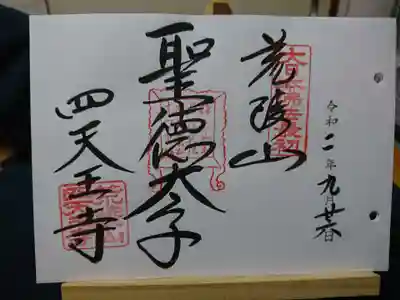 令和二年九月廿六日
荒陵山
聖徳太子
四天王寺